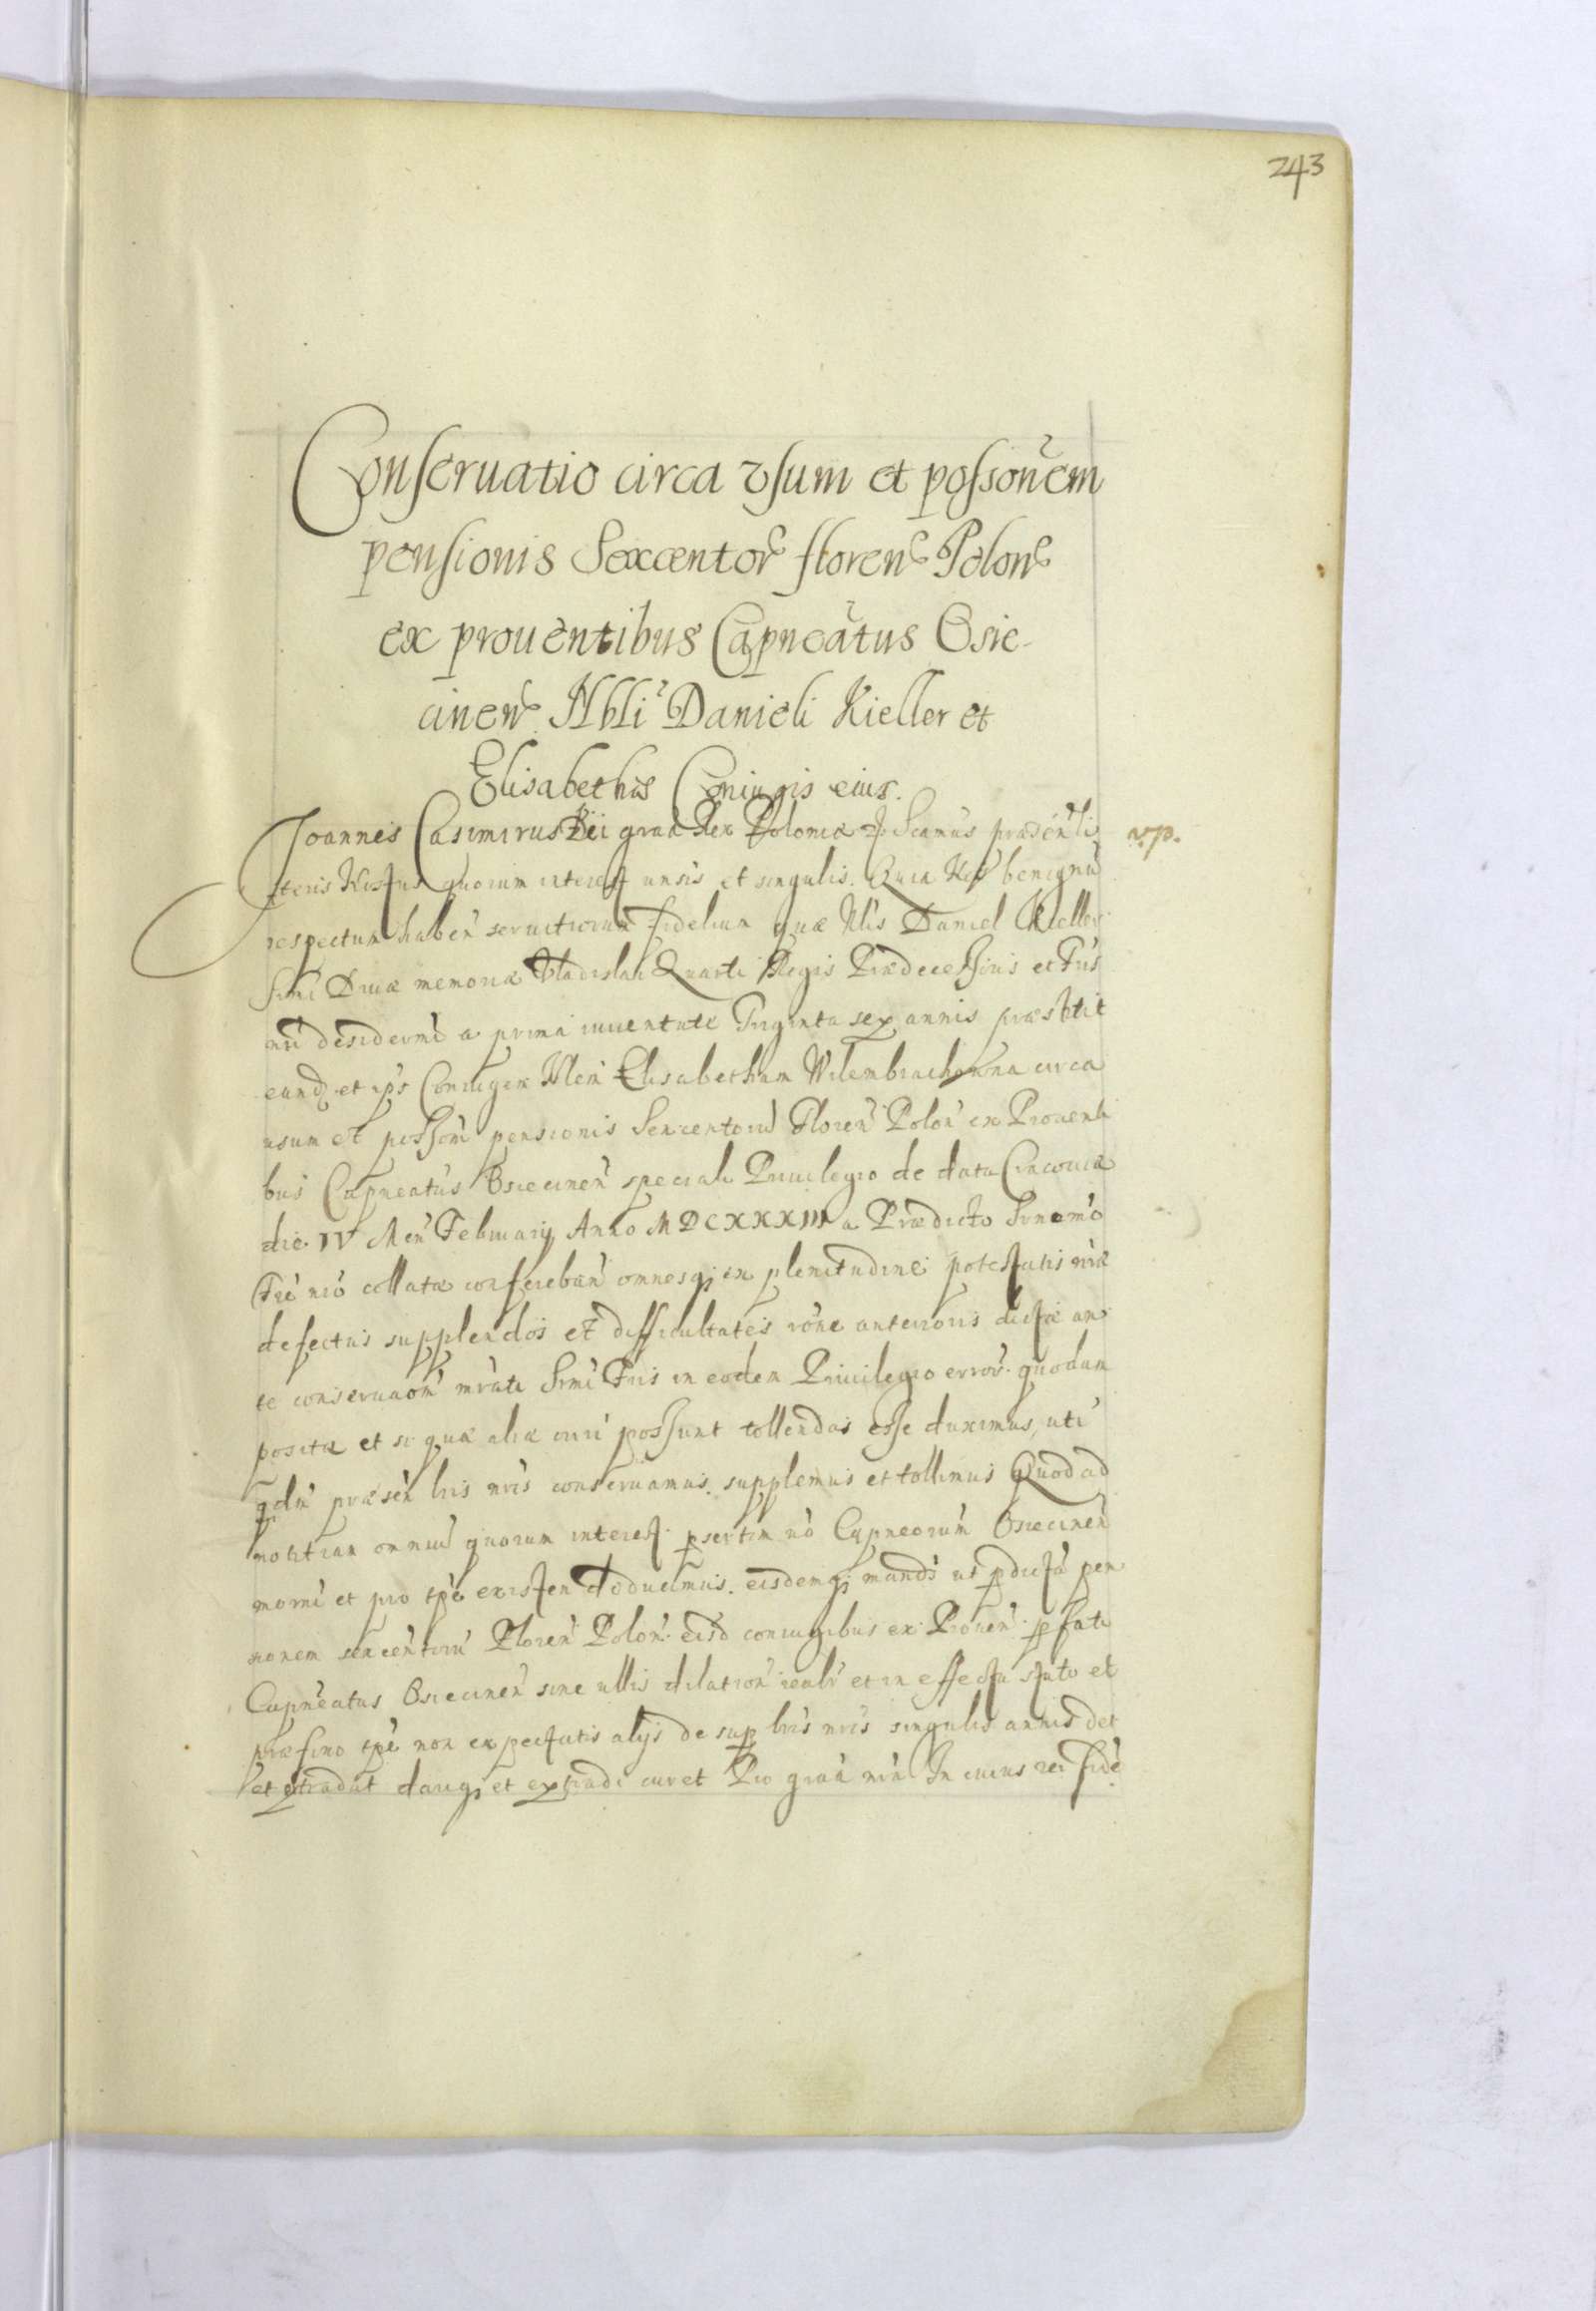 243
Conseruatio circa vsum et possonem
pensionis Sexcentor floren Polon
ex prouentibus Capneatus Osie-
cinen Nbli Danieli Kieller et
Elisabethæ Coniugis eius.
Joannes Casimirus Dei graa Rex Poloniæ Scamus præsenti
v.p.
teris Nostris quorum interest unsis et singulis. Quia Nos benignu
respectum haben seruitiorum fidelium quæ Nlis Daniel Kieller
Srmi Diuæ memoriæ Vladislai Quarti Regis Prædecessoris et Fris
nri desidermi a prima iuuentute Triginta sex annis præstitit
eund et ips Coniugem Nlem Elisabetham Wilembrachowna circa
usum et possom pensionis Sexcentoru Floren Polon ex Prouenti
bus Capneatus Osiecinen speciali Priuilegio de data Cracouiæ
die IV Men Februarij Anno MDCXXXIII a Prædicto Srnomo
Fre nro collatæ conseruan omnesq ex plenitudine potestatis nræ
defectus supplendos et difficultates rone anterioris dictæ an
te conseruaom Srmi Fris in eodem Priuilegio error quodam
positæ et si quæ aliæ possunt tollendas esse duximus, uti
qdm præsen lris nris conseruamus supplemus et tollimus Quod ad
notitiam omniu quorum interest psertim no Capneorum Osiecinen
moerni et pro tpe existen deducimus. eisdemq mando ut pdicta pen
sionem sexcentoru Floren Polon eisd coniugibus ex Prouen pfati
Capneatus Osiecinen sine ullis dilation realr et in effectu stato et
præfixo tpe non expectatis alijs de sup lris nris singulis annis det
et extradat dariq et extradi curet Pro graa nra In cuius rei fide